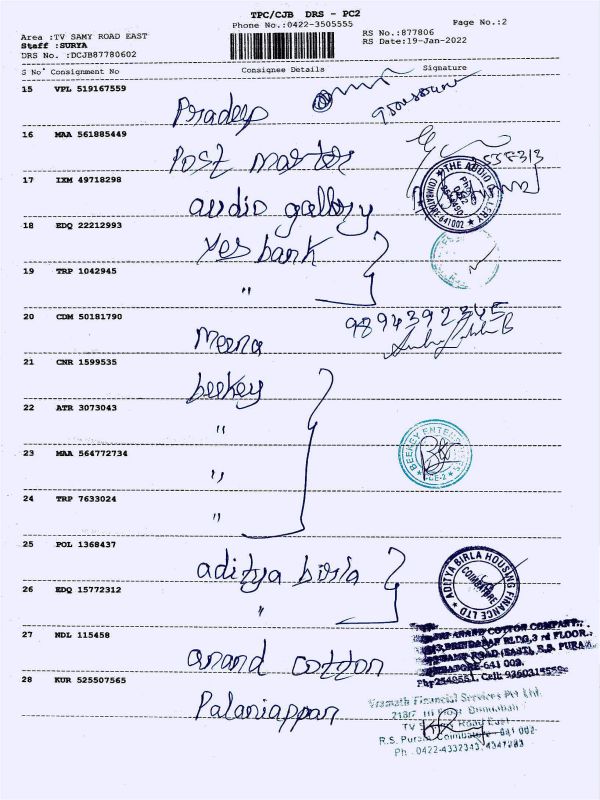 TPC/CJB DRS - PC2
Phone No.:0422-3505555
Page No.:2
Area :TV SAMY ROAD EAST
Staff :SURYA
DRS No. :DCJB87780602
RS No.:877806
RS Date:19-Jan-2022
S No Consignment No Consignee Details Signature
15 VPL 519167559
Pradeep
16 MAA 561885449
Post master
17 IXM 49718298
THE AUDIO GALLERY
COIMBATORE-641 002
audio gallery
18 EDQ 22212993
Yes bank
19 TRP 1042945
"
20 CDM 50181790
9894392345
Meena
21 CNR 1599535
beekey
22 ATR 3073043
"
23 MAA 564772734
BEEKEY ENTER
CBE-2
"
24 TRP 7633024
"
25 POL 1368437
aditya birla
ADITYA BIRLA HOUSING FINANCE LTD
COIMBATORE
26 EDQ 15772312
"
27 NDL 115458
anand cotton
ANAND COTTON COMPANY
BRINDABAN BLDG,3 rd FLOOR
ROAD (EAST), R.S. PURAM
641 002
Cell: 9360315559
28 KUR 525507565
Palaniappan
Financial Services Pvt Ltd
TV Road East
R.S. Puram Coimbatore 641 002
Ph : 0422-4332343, 4347283